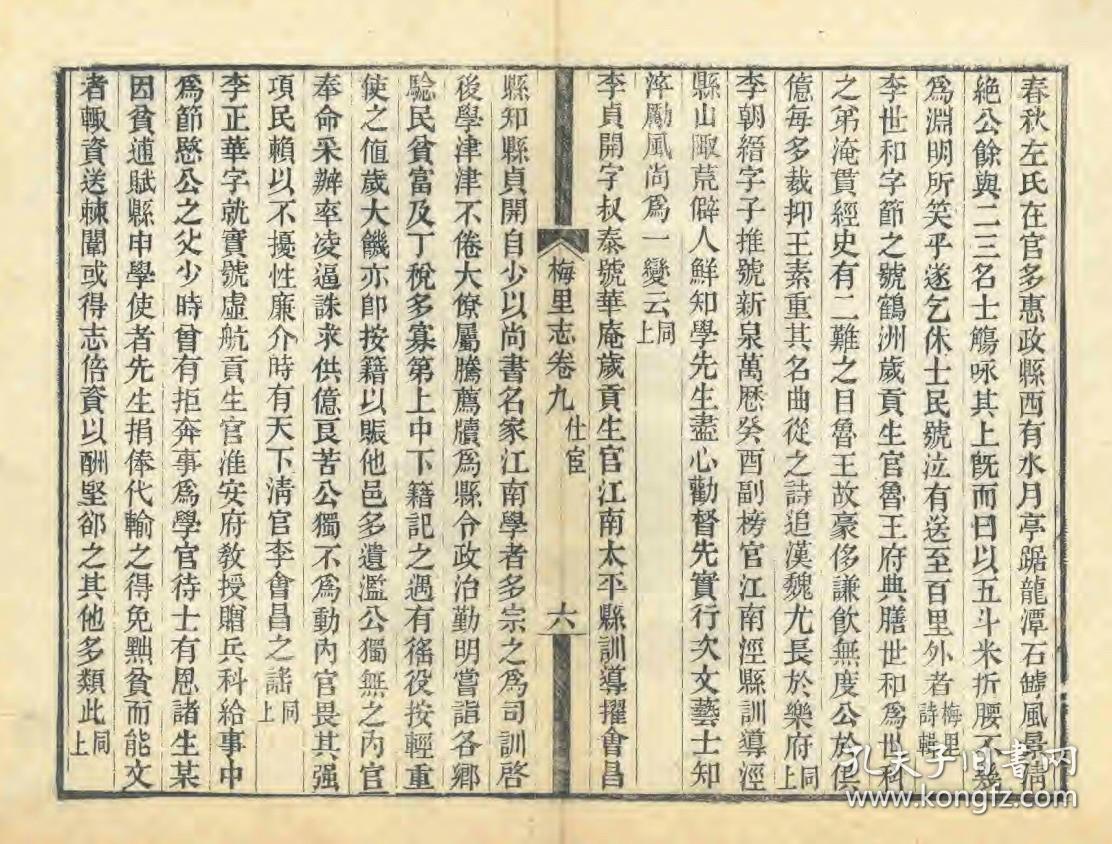 春秋左氏在官多惠政縣西有水月亭踞龍潭石罅風景清
絶公餘與二三名士觴咏其上旣而曰以五斗米折腰不幾
爲淵明所笑乎遂乞休士民號泣有送至百里外者梅里詩輯
李世和字節之號鶴洲歲貢生官魯王府典膳世和爲世科
之弟淹貫經史有二難之目魯王故豪侈謙飲無度公於供
億每多裁抑王素重其名曲從之詩追漢魏尤長於樂府同上
李朝縉字子推號新泉萬厯癸酉副榜官江南涇縣訓導涇
縣山陬荒僻人鮮知學先生盡心勸督先實行次文藝士知
淬勵風尚爲一變云同上
李貞開字叔泰號華庵歲貢生官江南太平縣訓導擢會昌
梅里志卷九 仕宦 六
縣知縣貞開自少以尚書名家江南學者多宗之爲司訓啓
後學津津不倦大僚屬騰薦牘爲縣令政治勤明嘗詣各鄉
驗民貧富及丁稅多寡第上中下籍記之遇有徭役按輕重
使之值歲大饑亦卽按籍以賑他邑多遺濫公獨無之內官
奉命采辦率凌逼誅求供億良苦公獨不爲動內官畏其强
項民賴以不擾性廉介時有天下淸官李會昌之謠同上
李正華字就實號虛航貢生官淮安府敎授贈兵科給事中
爲節愍公之父少時曾有拒奔事爲學官待士有恩諸生某
因貧逋賦縣申學使者先生捐俸代輸之得免黜貧而能文
者輒資送棘闈或得志倍資以酬堅卻之其他多類此同上
孔夫子旧书网
www.kongfz.com